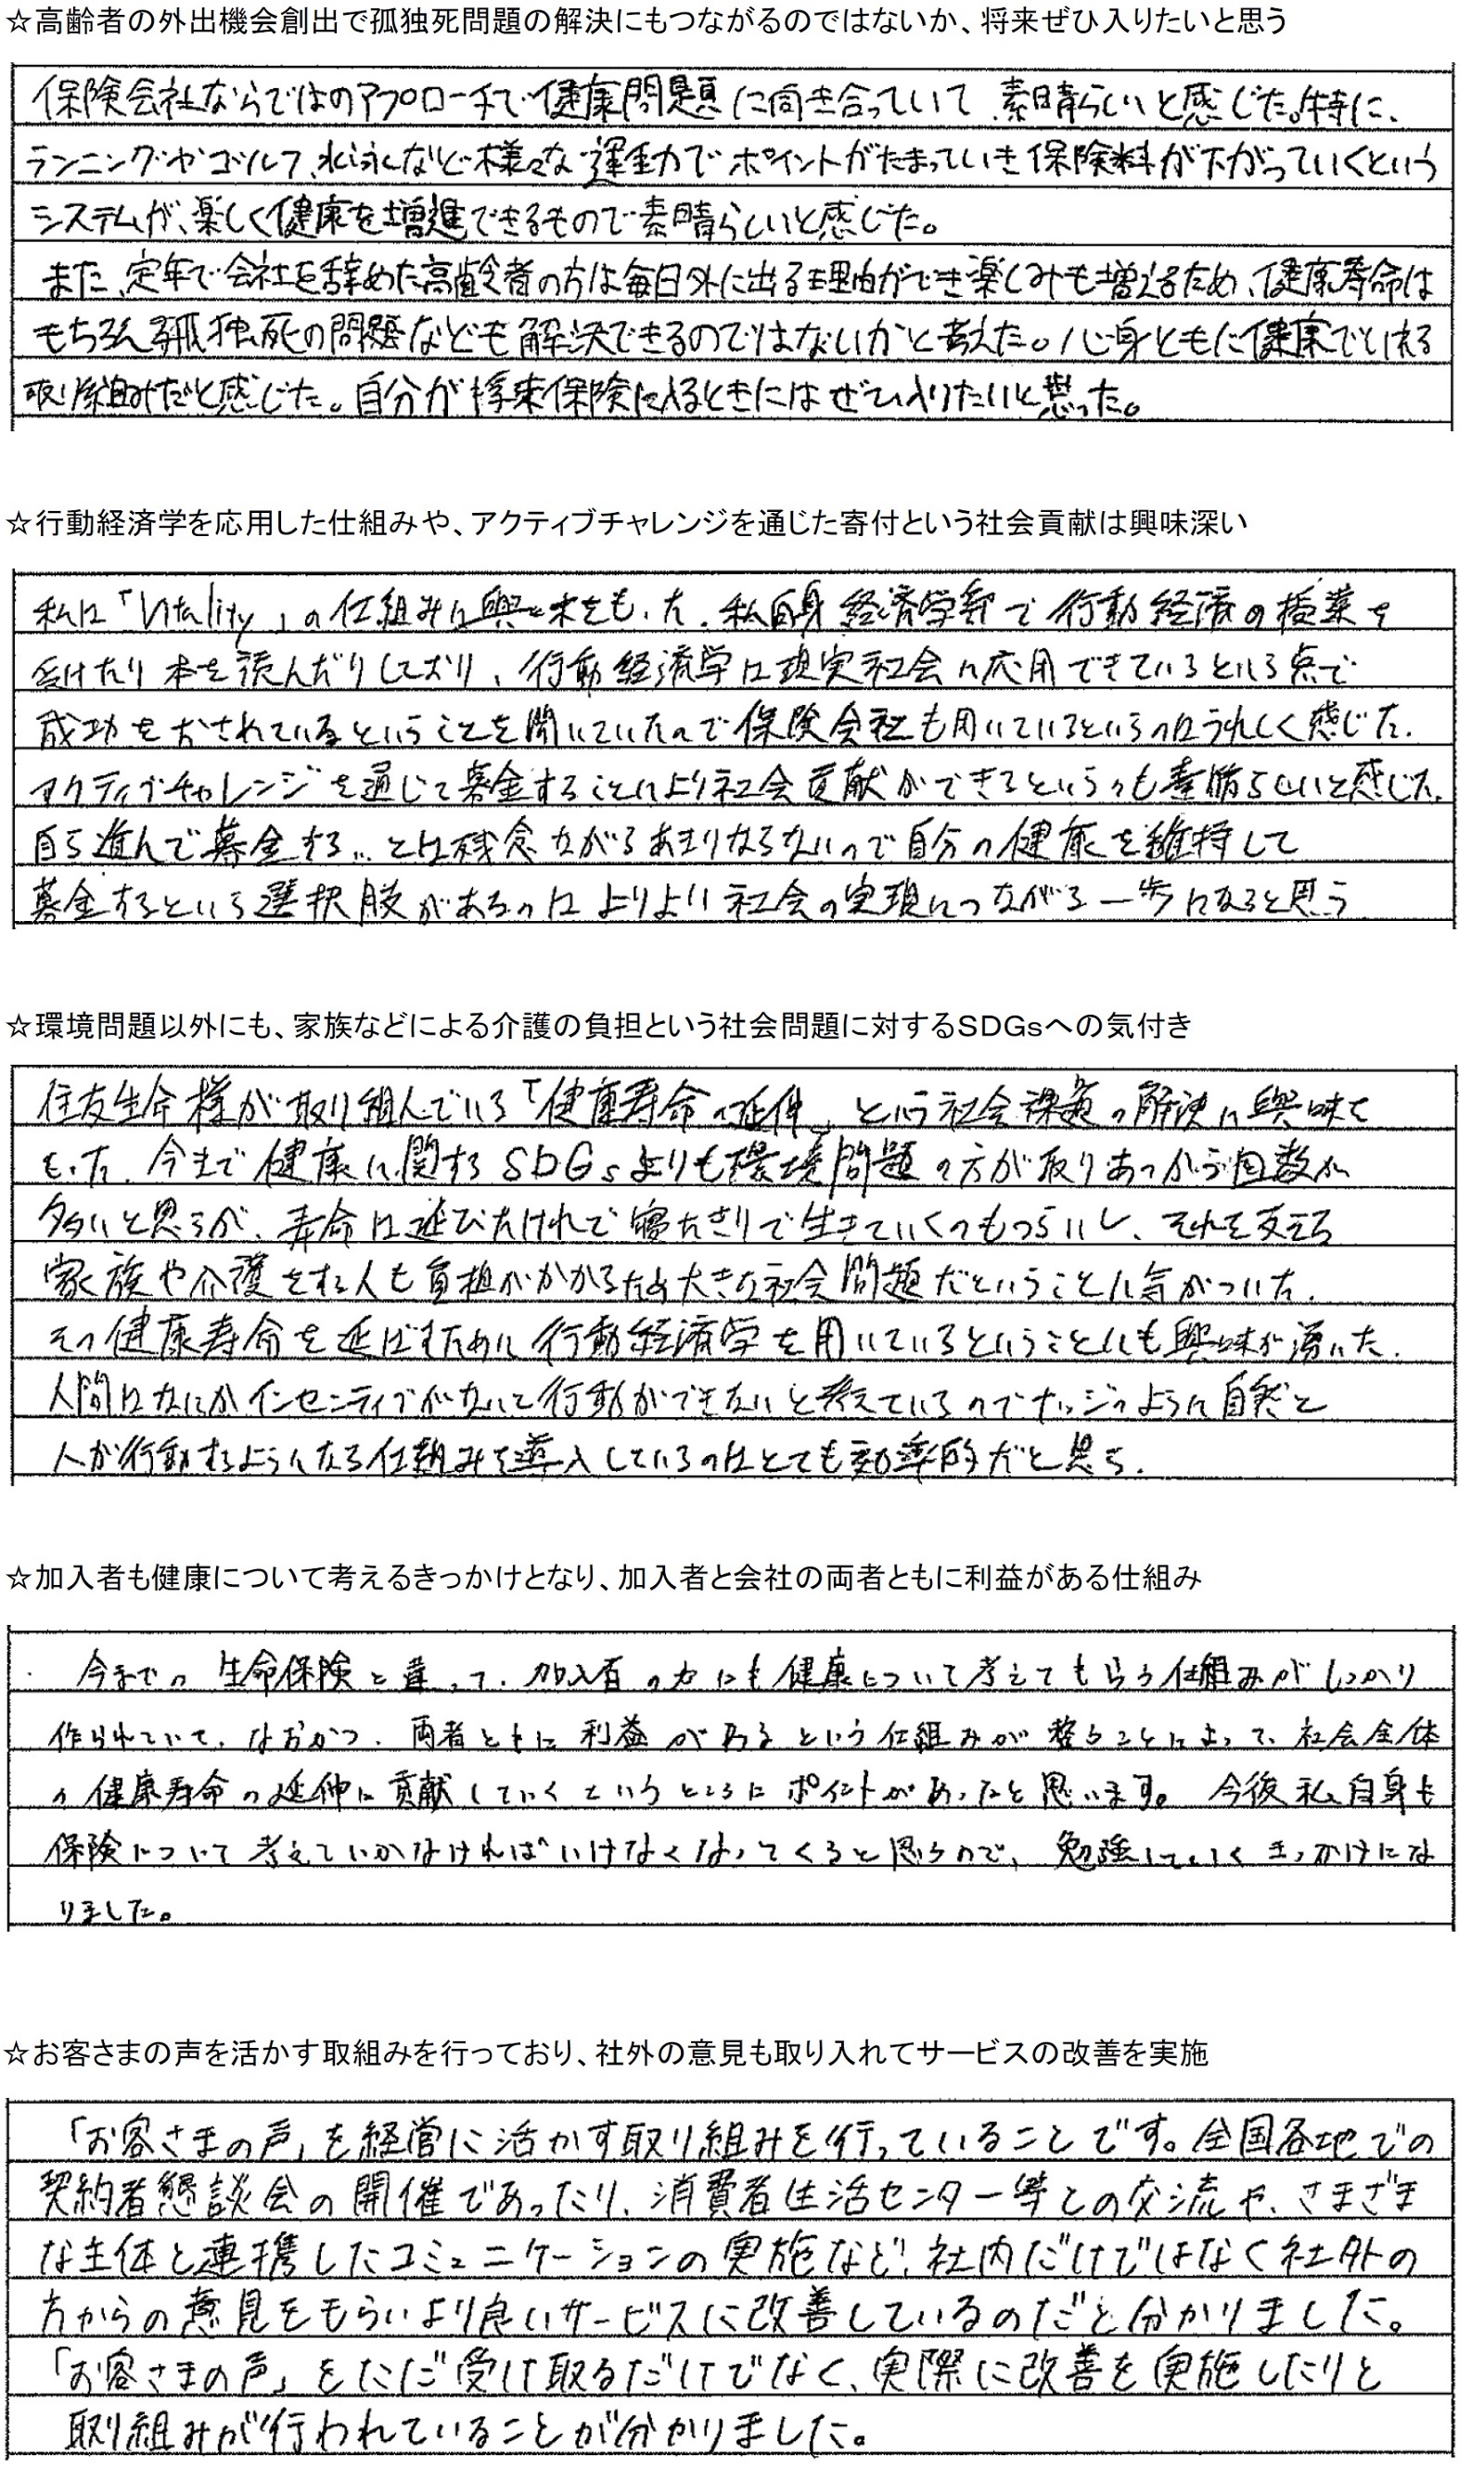 ☆高齢者の外出機会創出で孤独死問題の解決にもつながるのではないか、将来ぜひ入りたいと思う
保険会社ならではのアプローチで健康問題に向き合っていて素晴らしいと感じた。特に、
ランニングやゴルフ、水泳など様々な運動でポイントがたまっていき保険料が下がっていくという
システムが、楽しく健康を増進できるもので素晴らしいと感じた。
また、定年で会社を辞めた高齢者の方は毎日外に出る理由ができ楽しみも増えるため、健康寿命は
もちろん孤独死の問題なども解決できるのではないかと考えた。心身ともに健康でいれる
取り組みだと感じた。自分が将来保険に入るときにはぜひ入りたいと思った。
☆行動経済学を応用した仕組みや、アクティブチャレンジを通じた寄付という社会貢献は興味深い
私は「Vitality」の仕組みに興味をもった。私自身経済学部で行動経済の授業を
受けたり本を読んだりしており、行動経済学は現実社会に応用できているという点で
成功をおされているということを聞いていたので保険会社も用いているというのはうれしく感じた。
アクティブチャレンジを通じて募金することにより社会貢献ができるというのも素晴らしいと感じた。
自ら進んで募金することは残念ながらあまりならないので自分の健康を維持して
募金するという選択肢があるのはよりよい社会の実現につながる一歩になると思う
☆環境問題以外にも、家族などによる介護の負担という社会問題に対するSDGsへの気付き
住友生命様が取り組んでいる「健康寿命の延伸」という社会課題の解決に興味を
もった。今まで健康に関するSDGsよりも環境問題の方が取りあつかう回数が
多いと思うが、寿命は延びたけれど寝たきりで生きていくのもつらいし、それを支える
家族や介護をする人も負担がかかるため大きな社会問題だということに気がついた。
その健康寿命を延ばすために行動経済学を用いているということにも興味が湧いた。
人間はなにかインセンティブがないと行動ができないと考えているのでナッジのように自然と
人が行動するようになる仕組みを導入しているのはとても効率的だと思う。
☆加入者も健康について考えるきっかけとなり、加入者と会社の両者ともに利益がある仕組み
今までの生命保険と違って、加入者の方にも健康について考えてもらう仕組みがしっかり
作られていて、なおかつ、両者ともに利益があるという仕組みが整うことによって、社会全体
の健康寿命の延伸に貢献していくというところにポイントがあったと思います。今後私自身も
保険について考えていかなければいけなくなってくると思うので、勉強していくきっかけにな
りました。
☆お客さまの声を活かす取組みを行っており、社外の意見も取り入れてサービスの改善を実施
「お客さまの声」を経営に活かす取り組みを行っていることです。全国各地での
契約者懇談会の開催であったり、消費者生活センター等との交流や、さまざま
な主体と連携したコミュニケーションの実施など、社内だけではなく社外の
方からの意見をもらいより良いサービスに改善しているのだと分かりました。
「お客さまの声」をただ受け取るだけでなく、実際に改善を実施したりと
取り組みが行われていることが分かりました。